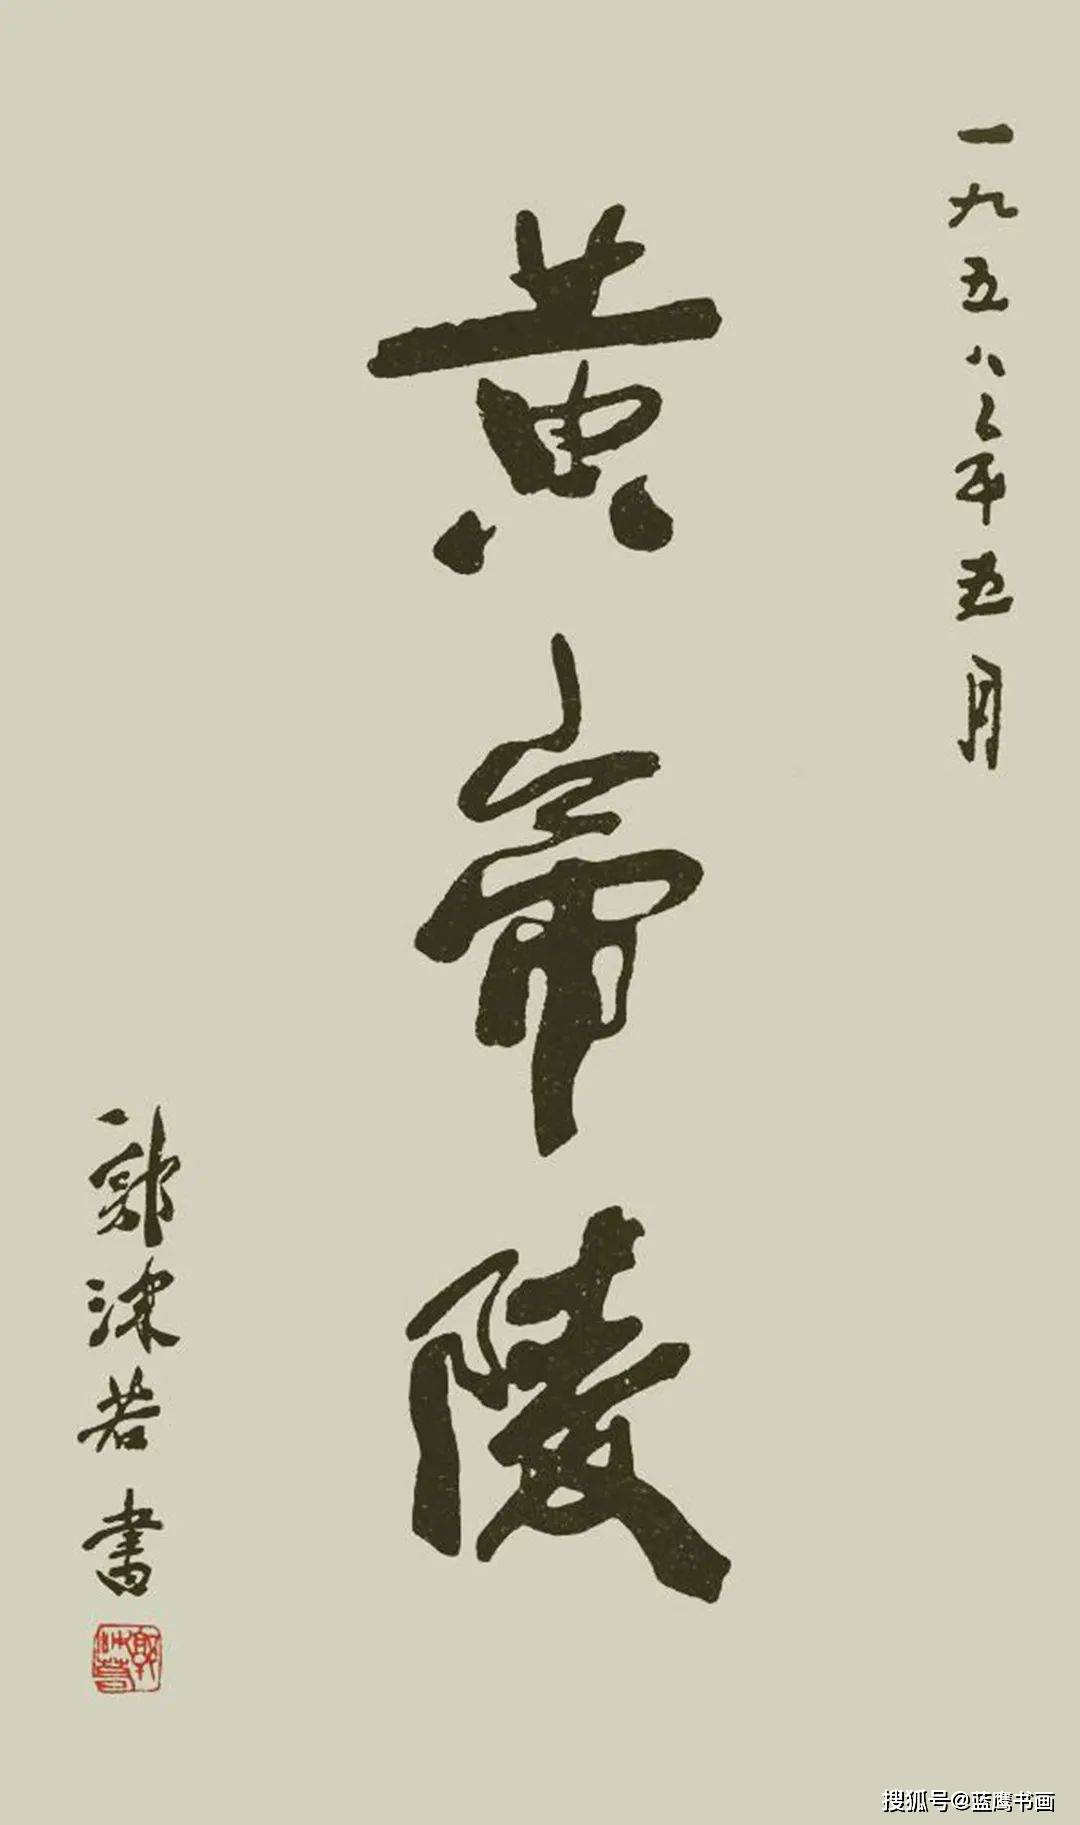 一九五八年五月
黄帝陵
郭沫若書
郭沫若
搜狐号@蓝鹰书画